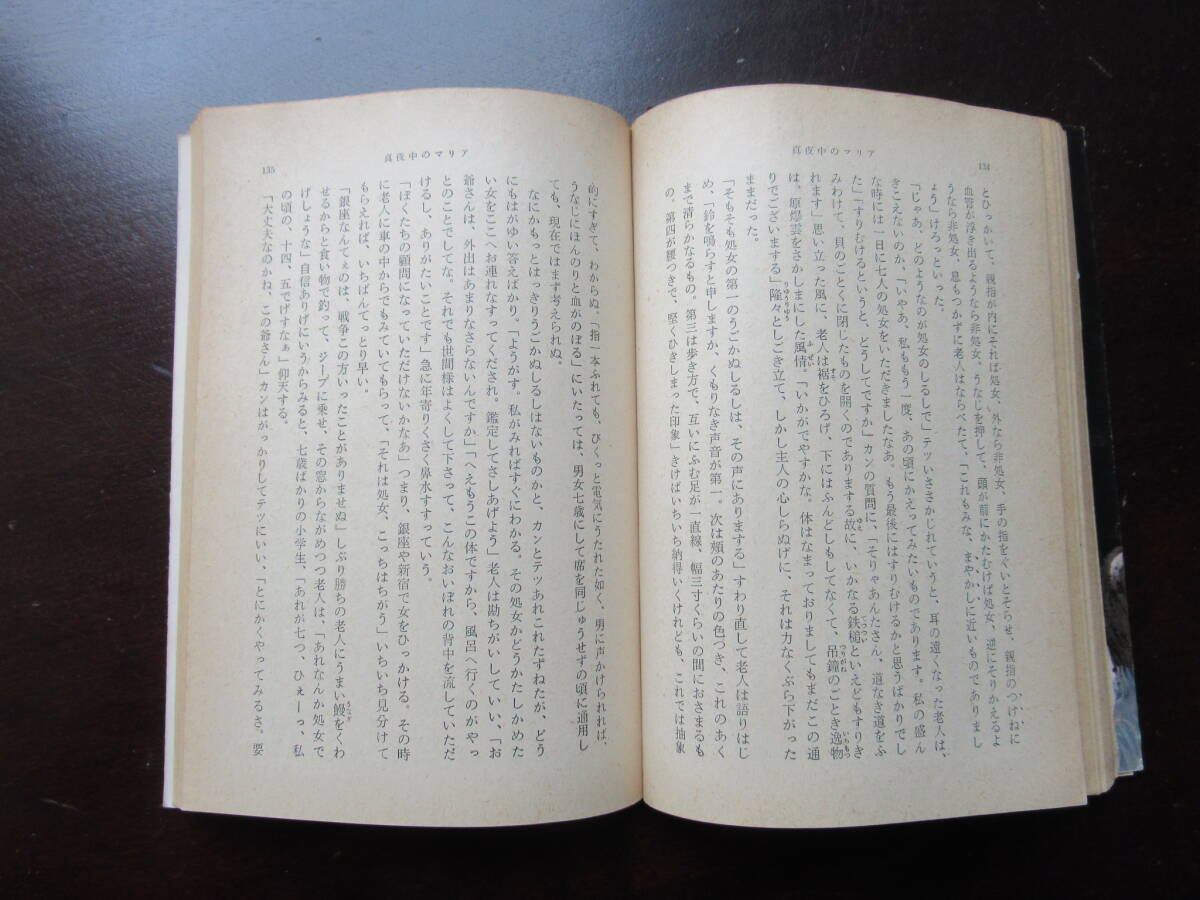 真夜中のマリア
134
とひっかいて、親指が内にそれば処女、外なら非処女、手の指をぐいとそらせ、親指のつけねに
血管が浮き出るようなら非処女、うなじを押して、頭が前にかたむけば処女、逆にそりかえるよ
うなら非処女、息もつかずに老人はならべたて、「これもみな、まやかしに近いものでありまし
ょう」けろっといった。
「じゃあ、どのようなのが処女のしるしで」テツいささかじれていうと、耳の遠くなった老人は、
きこえないのか、「いやあ、私ももう一度、あの頃にかえってみたいものであります。私の盛ん
な時には一日に七人の処女をいただきましたなあ。もう最後にはすりむけるかと思うばかりでし
た」「すりむけるというと、どうしてですか」カンの質問に、「そりゃあんたさん、道なき道をふ
みわけて、貝のごとくに閉じたものを開くのでありまする故に、いかなる鉄槌といえどもすりき
れます」思い立った風に、老人は裾をひろげ、下にはふんどしもしてなくて、吊鐘のごとき逸物
は。原爆雲をさかしまにした風情。「いかがでやすかな。体はなまっておりましてもまだこの通
りでございまする」隆々としごき立て、しかし主人の心しらぬげに、それは力なくぶら下がった
ままだった。
「そもそも処女の第一のうごかぬしるしは、その声にありまする」すわり直して老人は語りはじ
め、「鈴を鳴らすと申しますか、くもりなき声音が第一。次は頬のあたりの色つき、これのあく
まで清らかなるもの。第三は歩き方で、互いにふむ足が一直線、幅三寸くらいの間におさまるも
の。第四が腰つきで、堅くひきしまった印象」きけばいちいち納得いくけれども、これでは抽象
真夜中のマリア
135
的にすぎて、わからぬ、「指一本ふれても、びくっと電気にうたれた如く、男に声かけられれば、
うなじにほんのりと血がのぼる」にいたっては、男女七歳にして席を同じゅうせずの頃に通用し
ても、現在ではまず考えられぬ。
なにかもっとはっきりうごかぬしるしはないものかと、カンとテツあれこれたずねたが、どう
にもはがゆい答えばかり。「ようがす。私がみればすぐにわかる。その処女かどうかたしかめた
い女をここへお連れなすってくだされ。鑑定してさしあげよう」老人は勘ちがいしていい、「お
爺さんは、外出はあまりなさらないんですか」「へえもうこの体ですから、風呂へ行くのがやっ
とのことでしてな。それでも世間様はよくして下さって、こんなおいぼれの背中を流していただ
けるし、ありがたいことです」急に年寄りくさく鼻水すすっていう。
「ぼくたちの顧問になっていただけないかなあ」つまり、銀座や新宿で女をひっかける。その時
に老人に車の中からでもみていてもらって、「それは処女、こっちはちがう」いちいち見分けて
もらえれば、いちばんてっとり早い。
「銀座なんてぇのは、戦争この方いったことがありませぬ」しぶり勝ちの老人にうまい鰻をくわ
せるからと食い物で釣って、ジープに乗せ、その窓からながめつつ老人は、「あれなんか処女で
げしょうな」自信ありげにいうからみると、七歳ばかりの小学生、「あれが七つ、ひぇーっ、私
の頃の、十四、五でげすなぁ」仰天する。
「大丈夫なのかね、この爺さん」カンはがっかりしてテツにいい、「とにかくやってみるさ。要